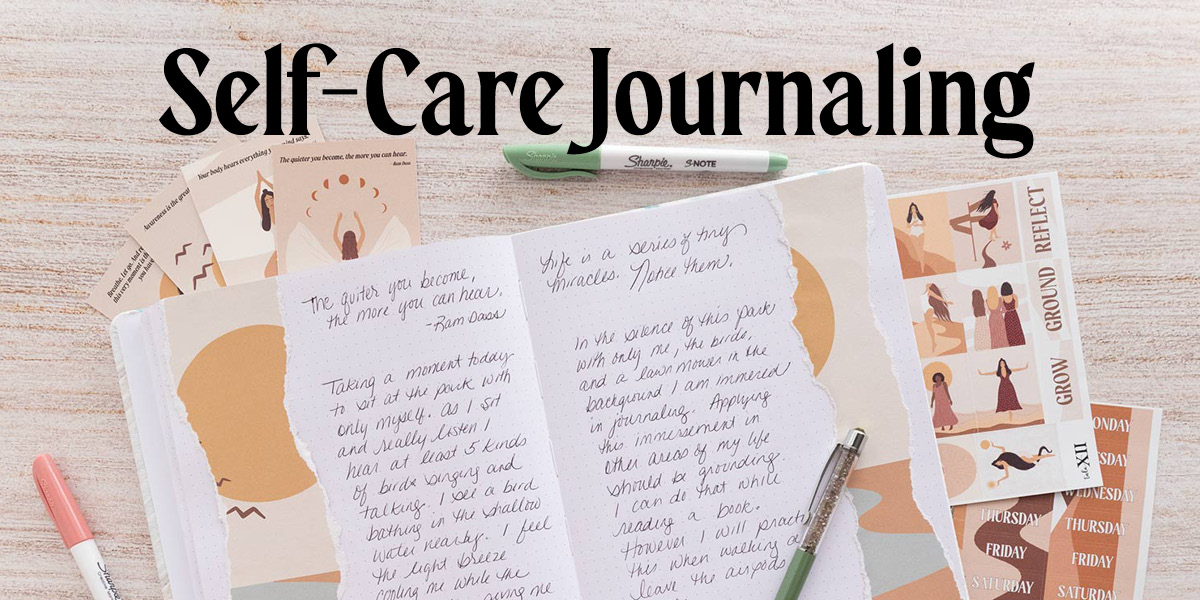 Self-Care Journaling
Your body hears everything
mind says
The quieter you become, the more you can hear.
- Ram Dass
Awareness is the
Breathe. Let go. And
this very moment is th
you
Sharpie
Sharpie S·NOTE
The quiter you become,
the more you can hear.
-Ram Dass
Taking a moment today
to sit at the park with
only myself. As I sit
and really listen I
hear at least 5 kinds
of birds singing and
talking. I see a bird
bathing in the shallow
water nearby. I feel
the light breeze
cooling me while the
giving me
Life is a series of tiny
miracles. Notice them.
In the silence of this park
with only me, the birds,
and a lawn mower in the
background I am immersed
in journaling. Applying
this immersement in
other areas of my life
should be grounding.
I can do that while
reading a book.
However I will practi
this when walking a
leave the airpods
REFLECT
GROUND
GROW
XII
ONDAY
ESDAY
WEDNESDAY
THURSDAY
THURSDAY
FRIDAY
FRIDAY
SATURDAY
SATURDA
Sharpie